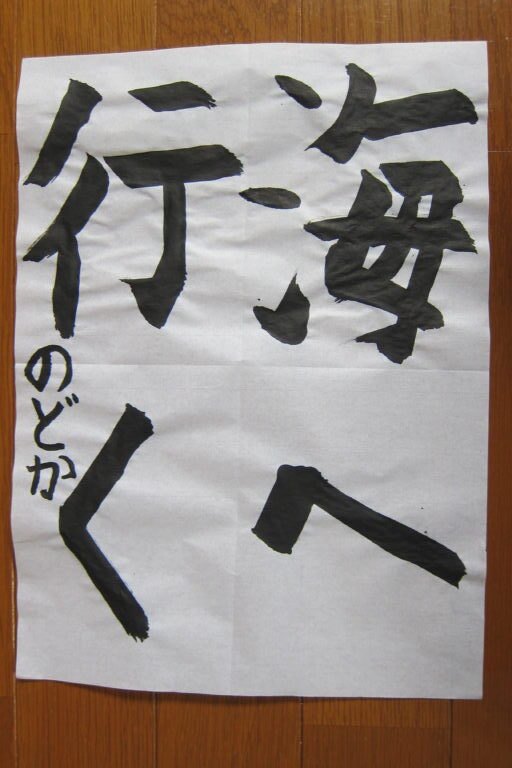 海へ
行く
のどか